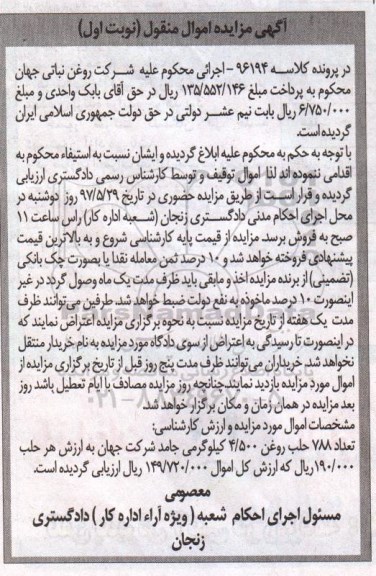 آگهی مزایده اموال منقول (نوبت اول)
در پرونده کلاسه ۹۶۱۹۴ - اجرائی محکوم علیه شرکت روغن نباتی جهان
محکوم به پرداخت مبلغ ۱۳۵/۵۵۲/۱۴۶ ریال در حق آقای بابک واحدی و مبلغ
۶/۷۵۰/۰۰۰ ریال بابت نیم عشر دولتی در حق دولت جمهوری اسلامی ایران
گردیده است.
با توجه به حکم به محکوم علیه ابلاغ گردیده و ایشان نسبت به استیفاء محکوم به
اقدامی ننموده اند لذا اموال توقیف و توسط کارشناس رسمی دادگستری ارزیابی
گردیده و قرار است از طریق مزایده حضوری در تاریخ ۹۷/۵/۲۹ روز دوشنبه در
محل اجرای احکام مدنی دادگستری زنجان (شعبه اداره کار) راس ساعت ۱۱
صبح به فروش برسد. مزایده از قیمت پایه کارشناسی شروع و به بالاترین قیمت
پیشنهادی فروخته خواهد شد و ۱۰ درصد ثمن معامله نقدا یا بصورت چک بانکی
(تضمینی) از برنده مزایده اخذ و مابقی باید ظرف مدت یک ماه وصول گردد در غیر
اینصورت ۱۰ درصد ماخوذه به نفع دولت ضبط خواهد شد. طرفین می‌توانند ظرف
مدت یک هفته از تاریخ مزایده نسبت به نحوه برگزاری مزایده اعتراض نمایند که
در اینصورت تا رسیدگی به اعتراض از سوی دادگاه مورد مزایده به نام خریدار منتقل
نخواهد شد. خریداران می‌توانند ظرف مدت پنج روز قبل از تاریخ برگزاری مزایده از
اموال مورد مزایده بازدید نمایند. چنانچه روز مزایده مصادف با ایام تعطیل باشد روز
بعد مزایده در همان زمان و مکان برگزار خواهد شد.
مشخصات اموال مورد مزایده و ارزش کارشناسی:
تعداد ۷۸۸ حلب روغن ۴/۵۰۰ کیلوگرمی جامد شرکت جهان به ارزش هر حلب
۱۹۰/۰۰۰ ریال که ارزش کل اموال ۱۴۹/۷۲۰/۰۰۰ ریال ارزیابی گردیده است.
معصومی
مسئول اجرای احکام شعبه (ویژه آراء اداره کار) دادگستری
زنجان